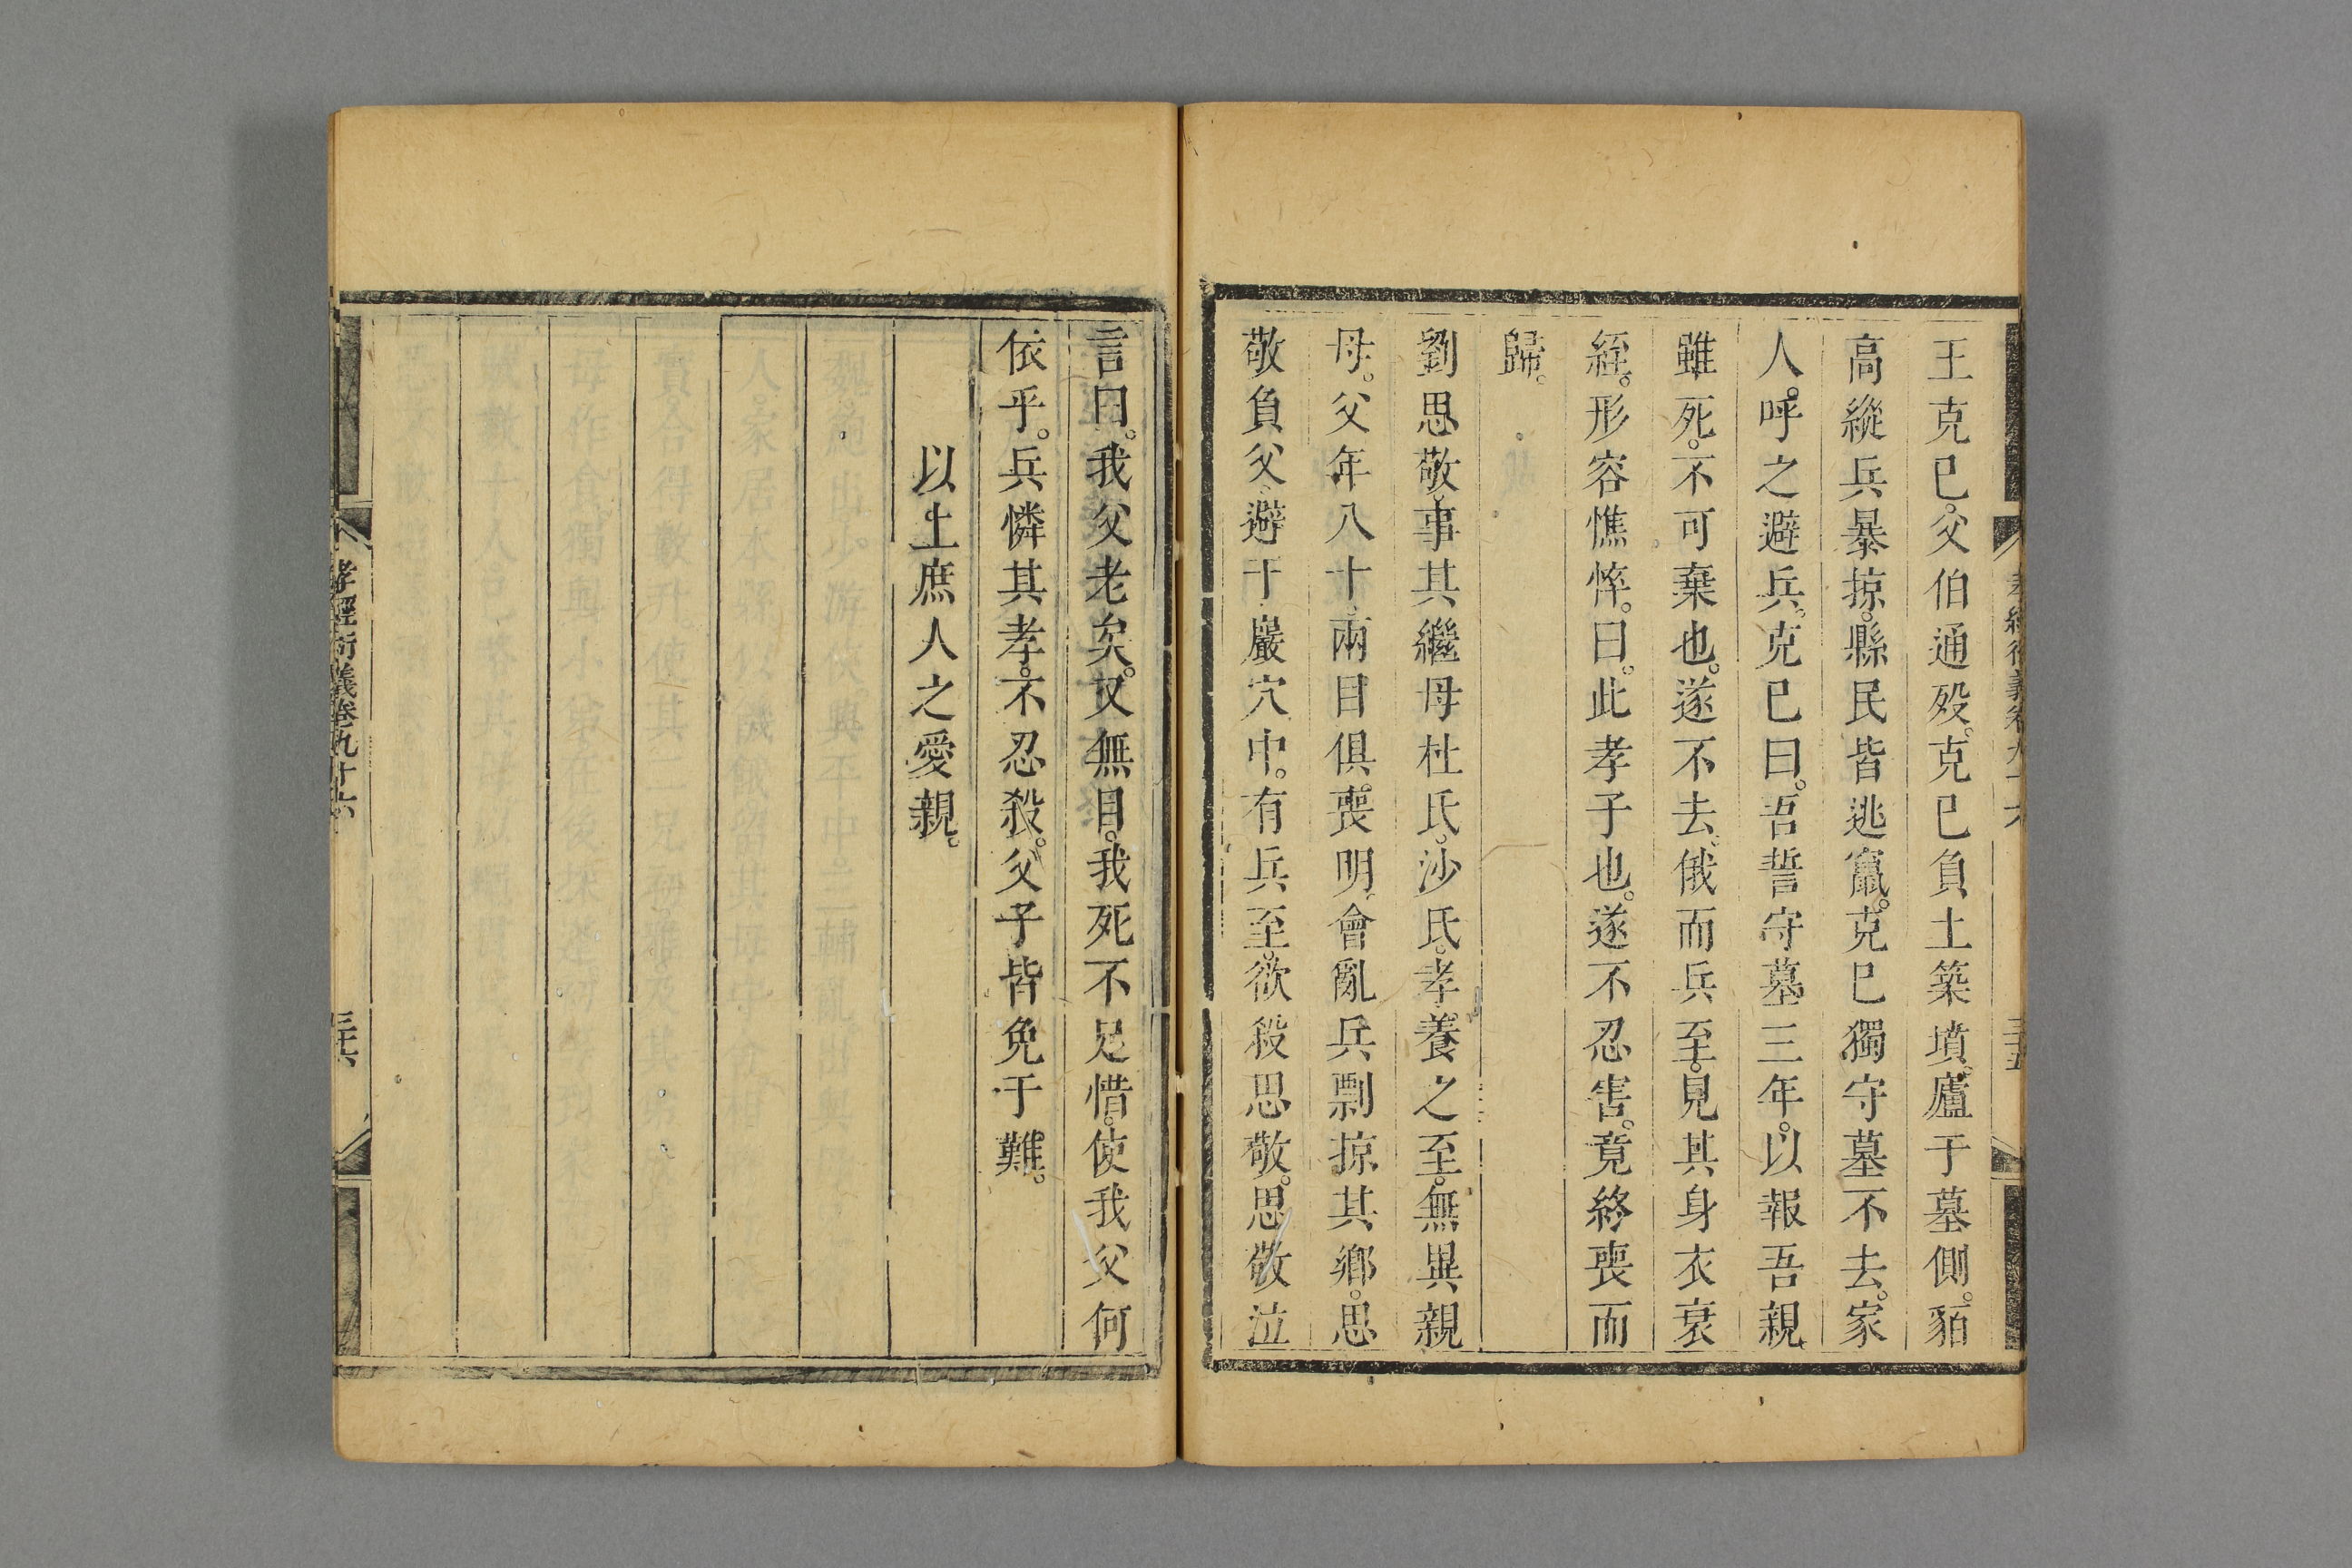 王克巳。父伯通殁。克巳負土築墳。廬于墓側。貊
高縱兵暴掠。縣民皆逃竄。克巳獨守墓不去。家
人。呼之避兵。克巳曰。吾誓守墓三年。以報吾親
雖死。不可棄也。遂不去。俄而兵至。見其身衣衰
絰。形容憔悴。曰。此孝子也。遂不忍害。竟終喪而
歸。
劉思敬。事其繼母杜氏。沙氏。孝養之至。無異親
母。父年八十。兩目俱喪明。會亂兵剽掠其鄉。思
敬負父。避于巖穴中。有兵至。欲殺思敬。思敬泣
言曰。我父老矣。又無目。我死不足惜。使我父何
依乎。兵憐其孝。不忍殺。父子皆免于難。
以士庶人之愛親。
孝經衍義卷九十六
三十六